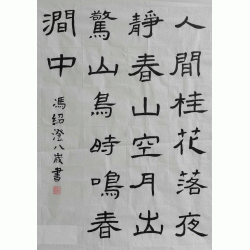 人閒桂花落夜
靜春山空月出
驚山鳥時鳴春
澗中
馮紹澄八歲書